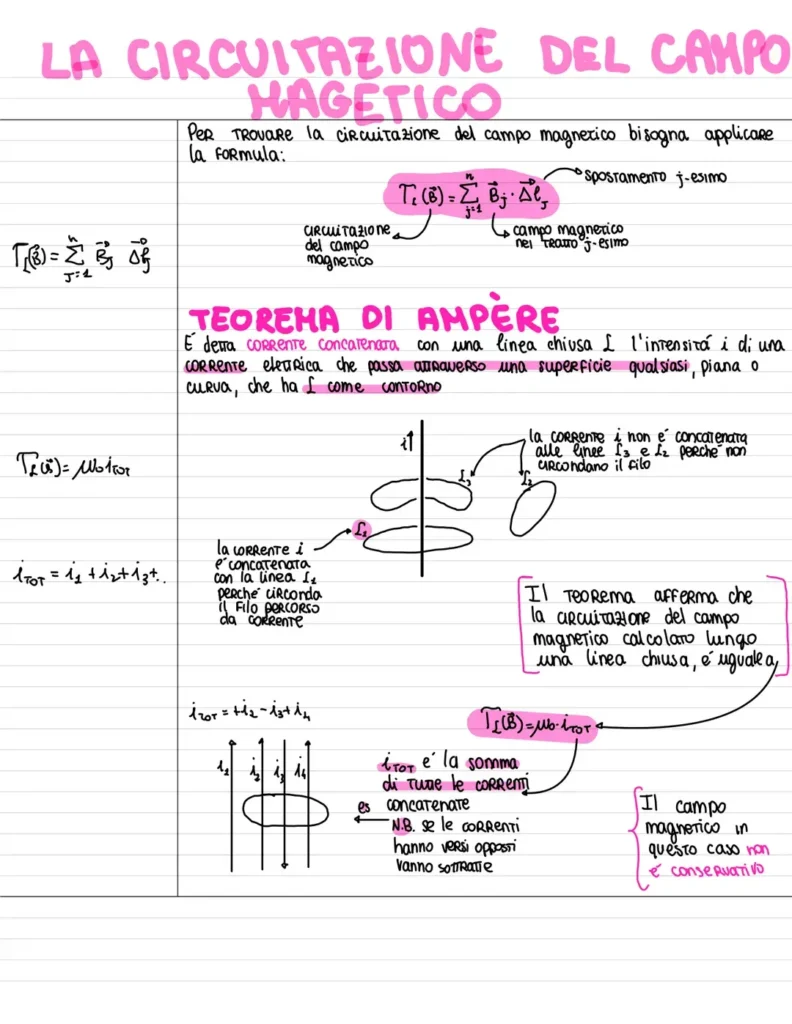 LA CIRCUITAZIONE DEL CAMPO
MAGETICO
PER TROVARE la CIRCUITAZIONE del campo magnetico bisogna applicare
la FORMULA:
Γ_L(B⃗) = Σ_{j=1}^{n} B⃗_j · Δl⃗_j
spostamento j-esimo
CIRCUITAZIONE
del campo
magnetico
campo magnetico
nel tratto j-esimo
Γ_L(B⃗) = Σ_{J=1}^{n} B⃗_J Δl⃗_j
TEOREMA DI AMPÈRE
É detta CORRENTE CONCATENATA con una linea chiusa L l'intensitá i di una
CORRENTE elettrica che passa attraverso una superficie qualsiasi, piana o
curva, che ha L come contorno
i↑
la CORRENTE i non é concatenata
alle linee L₃ e L₂ perché non
circondano il filo
L₃
L₂
L₁
Γ_L(B⃗) = μ₀ i_TOT
la CORRENTE i
é concatenata
con la linea L₁
perché circonda
il Filo percorso
da corrente
i_TOT = i₁ + i₂ + i₃ + ..
Il TEOREMA AFFERMA che
la CIRCUITAZIONE del campo
magnetico calcolato lungo
una linea chiusa, é uguale a
i_TOT = +i₂ - i₃ + i₄
Γ_L(B⃗) = μ₀ · i_TOT
i₁ i₂ i₃ i₄
i_TOT é la somma
di TUTTE le CORRENTI
es concatenate
N.B. se le CORRENTI
hanno versi opposti
vanno sottratte
Il campo
magnetico in
questo caso non
é conservativo